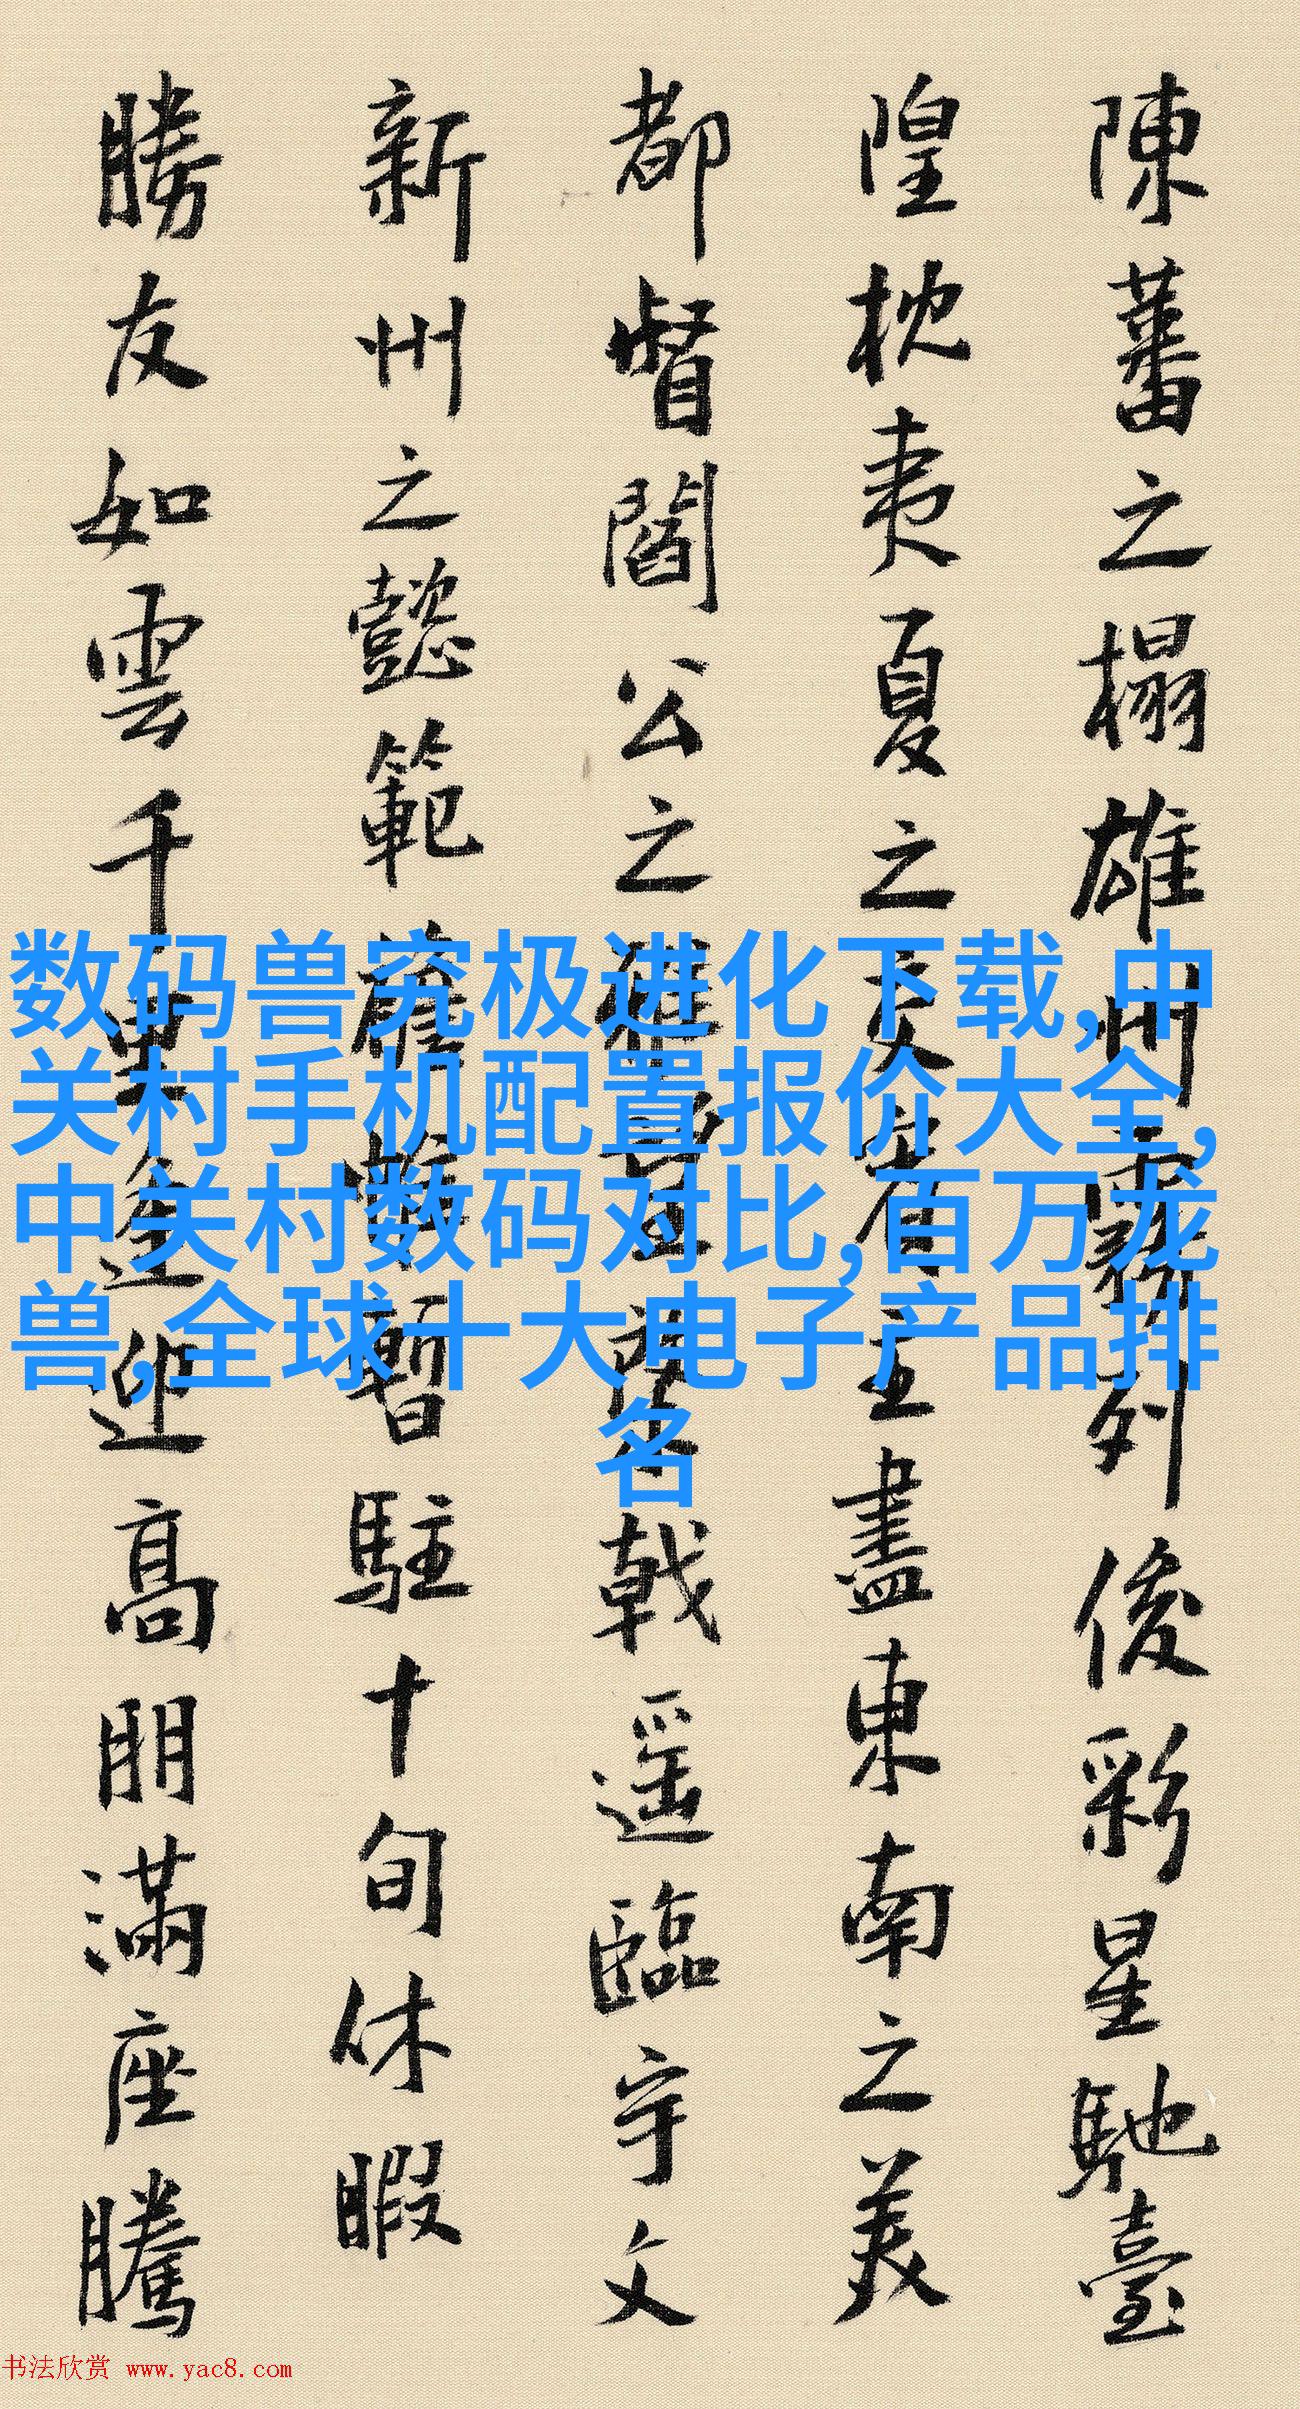 陳蕃之榻雄州霧列俊彩星馳臺
隍枕夷夏之交賓主盡東南之美
都督閻公之雅望棨戟遥臨宇文
新州之懿範襜帷暫駐十旬休暇
勝友如雲千里逢迎高朋滿座騰
数码兽究极进化下载,中
关村手机配置报价大全,
中关村数码对比,百万龙
兽,全球十大电子产品排
名
书法欣赏 www.yac8.com